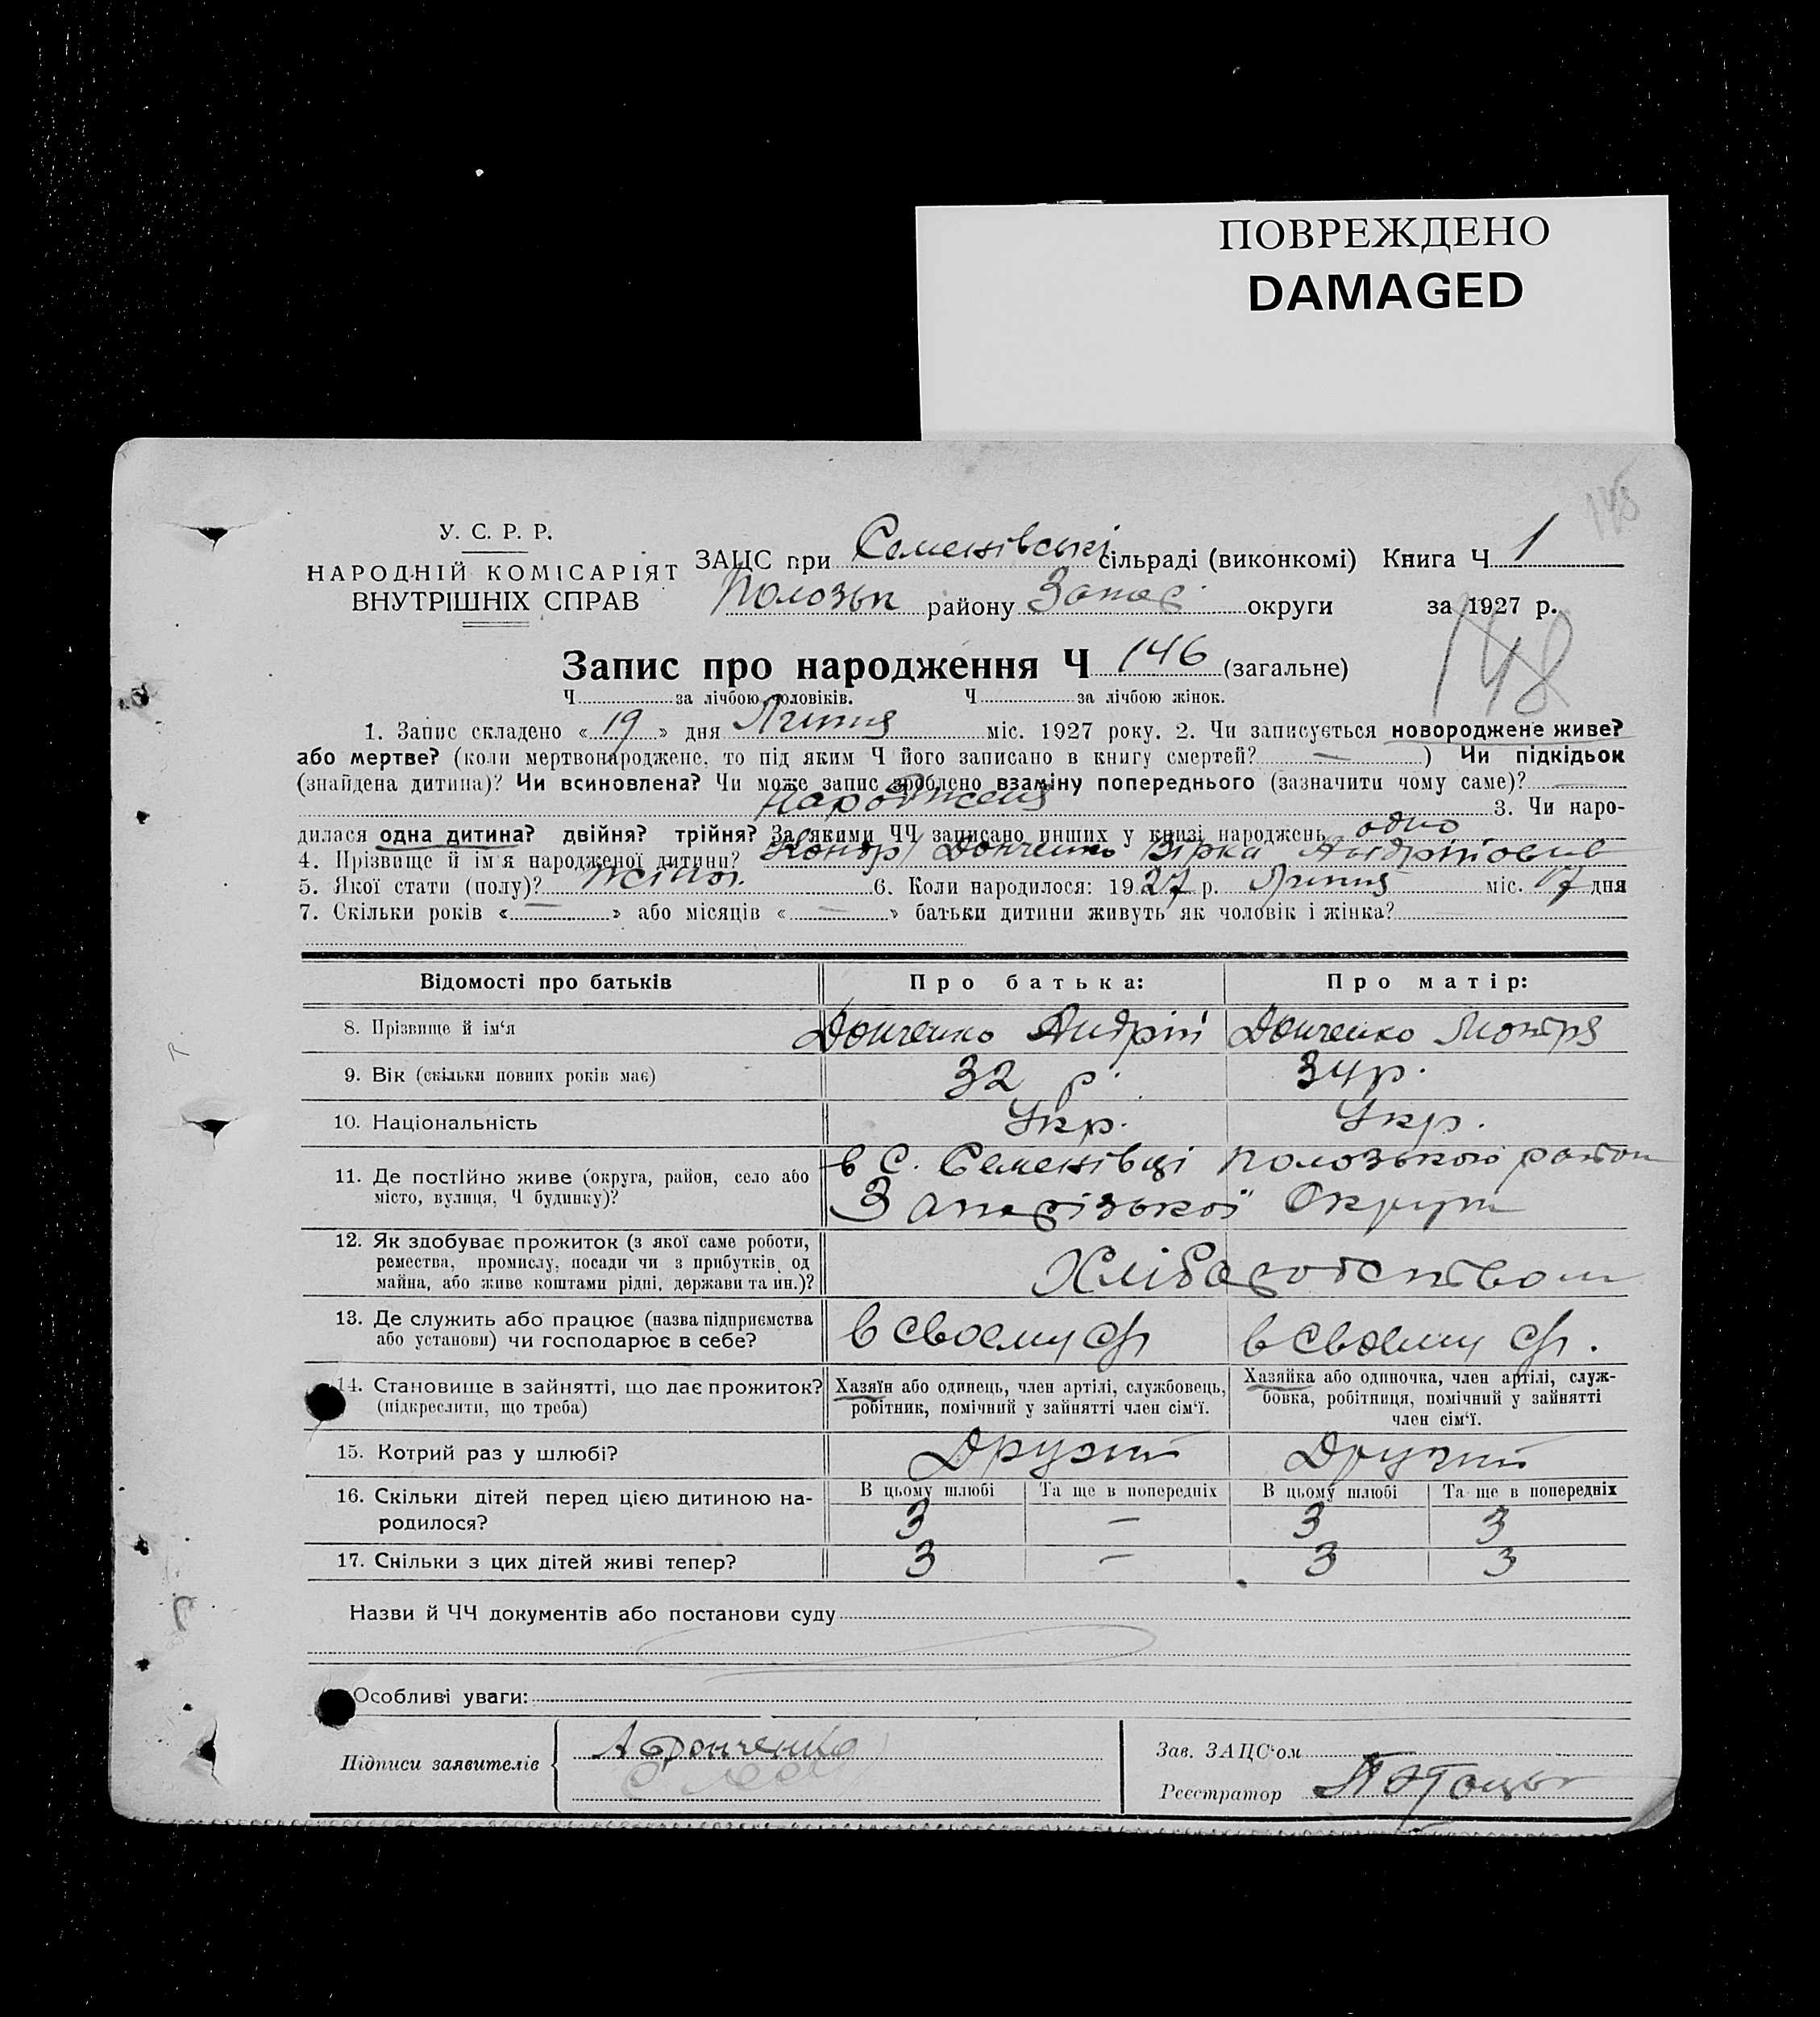 ПОВРЕЖДЕНО
DAMAGED
148
У. С. Р. Р.
НАРОДНІЙ КОМІСАРІЯТ
ВНУТРІШНІХ СПРАВ
ЗАЦС при Семенівські сільраді (виконкомі) Книга Ч 1
Полозьк району Запор. округи за 1927 р.
148
Запис про народження Ч 146 (загальне)
Ч за лічбою чоловіків. Ч за лічбою жінок.
1. Запис складено « 19 » дня Липня міс. 1927 року. 2. Чи записується новороджене живе?
або мертве? (коли мертвонароджене, то під яким Ч його записано в книгу смертей? — ) Чи підкідьок
(знайдена дитина)? Чи всиновлена? Чи може запис зроблено взаміну попереднього (зазначити чому саме)? —
Народженя 3. Чи наро-
дилася одна дитина? двійня? трійня? За якими ЧЧ записано инших у книзі народжень одно
4. Прізвище й ім'я народженої дитини? Донченко Вірка
5. Якої стати (полу)? жіноч. 6. Коли народилося: 1927 р. Липня міс. 17 дня
7. Скільки років « — » або місяців « — » батьки дитини живуть як чоловік і жінка?
Відомості про батьків Про батька: Про матір:
8. Прізвище й ім'я Донченко Андрій Донченко Мотря
9. Вік (скільки повних років має) 32 р. 34 р.
10. Національність Укр. Укр.
11. Де постійно живе (округа, район, село або в с. Семенівці Полозького район
місто, вулиця, Ч будинку)? Запорізької Округи
12. Як здобуває прожиток (з якої саме роботи,
ремества, промислу, посади чи з прибутків од
майна, або живе коштами рідні, держави та ин.)? Хліборобством
13. Де служить або працює (назва підприємства
або установи) чи господарює в себе? в своему гр в своему гр.
14. Становище в зайнятті, що дає прожиток? Хазяїн або одинець, член артілі, службовець, Хазяйка або одиночка, член артілі, служ-
(підкреслити, що треба) робітник, помічний у зайнятті член сім'ї. бовка, робітниця, помічний у зайнятті
член сім'ї.
15. Котрий раз у шлюбі? Другий Другий
16. Скільки дітей перед цією дитиною на- В цьому шлюбі Та ще в попередніх В цьому шлюбі Та ще в попередніх
родилося? 3 — 3 3
17. Скільки з цих дітей живі тепер? 3 — 3 3
Назви й ЧЧ документів або постанови суду
Особливі уваги:
Підписи заявителів А Донченко
Зав. ЗАЦС'ом
Реєстратор